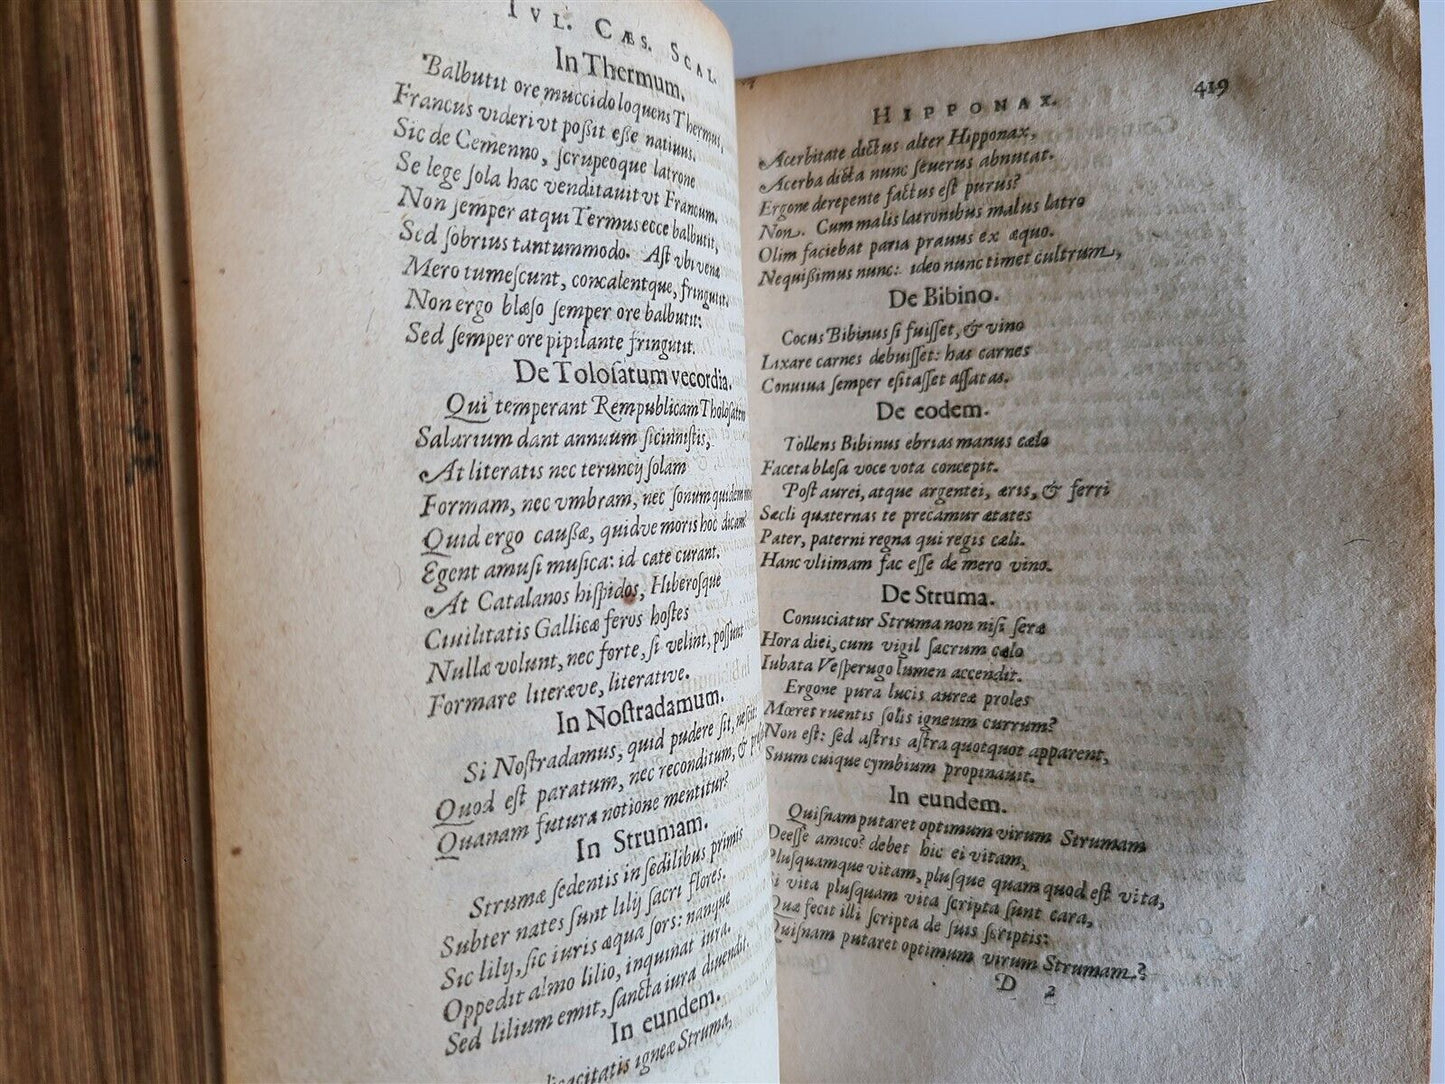 IVL. CÆS. SCAL.
In Thermum.
Balbutit ore muccido loquens Thermus,
Francus videri vt poßit eße natiuus.
Sic de Cemenno, ſcrupeoque latrone
Se lege ſola hac venditauit vt Francum.
Non ſemper atqui Termus ecce balbutit,
Sed ſobrius tantummodo. Aſt vbi venæ
Mero tumeſcunt, concalentque, fringutit.
Non ergo blæſo ſemper ore balbutit:
Sed ſemper ore pipilante fringutit.
De Toloſatum vecordia.
Qui temperant Rempublicam Tholoſatem
Salarium dant annuum ſicinniſtis,
At literatis nec teruncij ſolam
Formam, nec vmbram, nec ſonum quidem
Quid ergo cauſſæ, quidve moris hoc dicam?
Egent amuſi muſica: id cate curant.
At Catalanos hiſpidos, Hiberoſque
Ciuilitatis Gallicæ feros hoſtes
Nullæ volunt, nec forte, ſi velint, poſſunt
Formare literæve, literative.
In Noſtradamum.
Si Noſtradamus, quid pudere ſit, neſcit:
Quod eſt paratum, nec reconditum, &
Quanam futura notione mentitur?
In Strumam.
Strumæ ſedentis in ſedilibus primis
Subter nates ſunt lilij ſacri flores.
Sic lilij, ſic iuris æqua ſors: nanque
Oppedit almo lilio, inquinat iura.
Sed lilium emit, ſancta iura diuendit.
In eundem.
igneæ Struma,
HIPPONAX. 419
Acerbitate dictus alter Hipponax,
Acerba dicta nunc ſeuerus abnutat.
Ergone derepente factus eſt purus?
Non. Cum malis latronibus malus latro
Olim faciebat paria prauus ex æquo.
Nequißimus nunc: ideo nunc timet cultrum,
De Bibino.
Cocus Bibinus ſi fuiſſet, & vino
Lixare carnes debuiſſet: has carnes
Conuiua ſemper eſitaſſet aſſatas.
De eodem.
Tollens Bibinus ebrias manus cælo
Faceta blæſa voce vota concepit.
Poſt aurei, atque argentei, æris, & ferri
Sæcli quaternas te precamur ætates
Pater, paterni regna qui regis cæli.
Hanc vltimam fac eſſe de mero vino.
De Struma.
Conuiciatur Struma non niſi ſeræ
Hora diei, cum vigil ſacrum cælo
Iubata Veſperugo lumen accendit.
Ergone pura lucis aureæ proles
Mœret ruentis ſolis igneum currum?
Non eſt: ſed aſtris aſtra quotquot apparent,
Suum cuique cymbium propinauit.
In eundem.
Quiſnam putaret optimum virum Strumam
Deeſſe amico? debet hic ei vitam,
Pluſquamque vitam, pluſque quam quod eſt vita,
Si vita pluſquam vita ſcripta ſunt cara,
Quæ fecit illi ſcripta de ſuis ſcriptis:
Quiſnam putaret optimum virum Strumam?
D 2